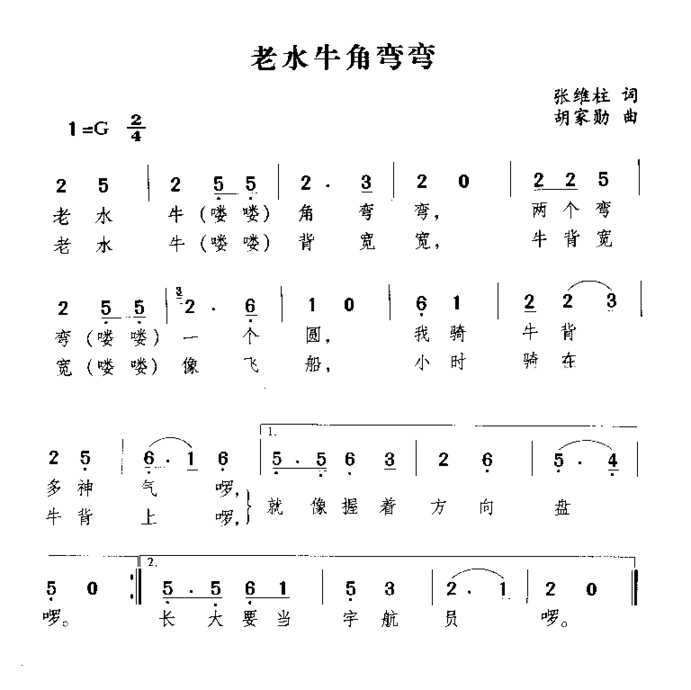 老水牛角弯弯
张维柱 词
1=G 2/4
胡家勋 曲
2 5 | 2 5 5 | 2 . 3 | 2 0 | 2 2 5 |
老 水 牛(喽 喽) 角 弯 弯, 两 个 弯
老 水 牛(喽 喽) 背 宽 宽, 牛 背 宽
2 5 5 | 3 2 . 6 | 1 0 | 6 1 | 2 2 3 |
弯(喽 喽) 一 个 圆, 我 骑 牛 背
宽(喽 喽) 像 飞 船, 小 时 骑 在
1. 2.
2 5 | 6 . 1 | 6 | 5 . 5 6 3 | 2 6 | 5 . 4 |
多 神 气 啰,
就 像 握 着 方 向 盘
牛 背 上 啰,
5 0 :| 5 . 5 6 1 | 5 3 | 2 . 1 | 2 0 :|
啰。 长 大 要 当 宇 航 员 啰。